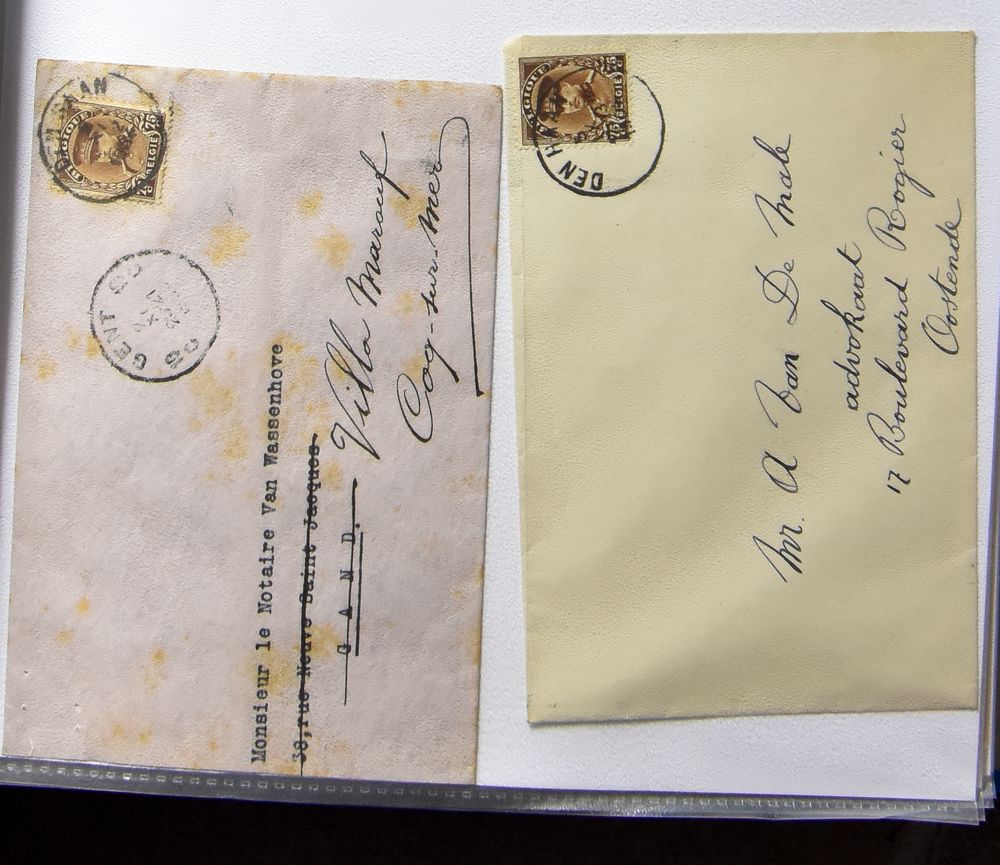 BELGIQUE 75
BELGIË
GENT
Monsieur le Notaire Van Wassenhove
38,rue Neuve Saint Jacques
G A N D.
Villa Marouf
Coq-sur-Mer
BELGIQUE 75
75 BELGIË
DEN HAAN
Mr. A Van De Male
advokaat
17 Boulevard Rogier
Oostende